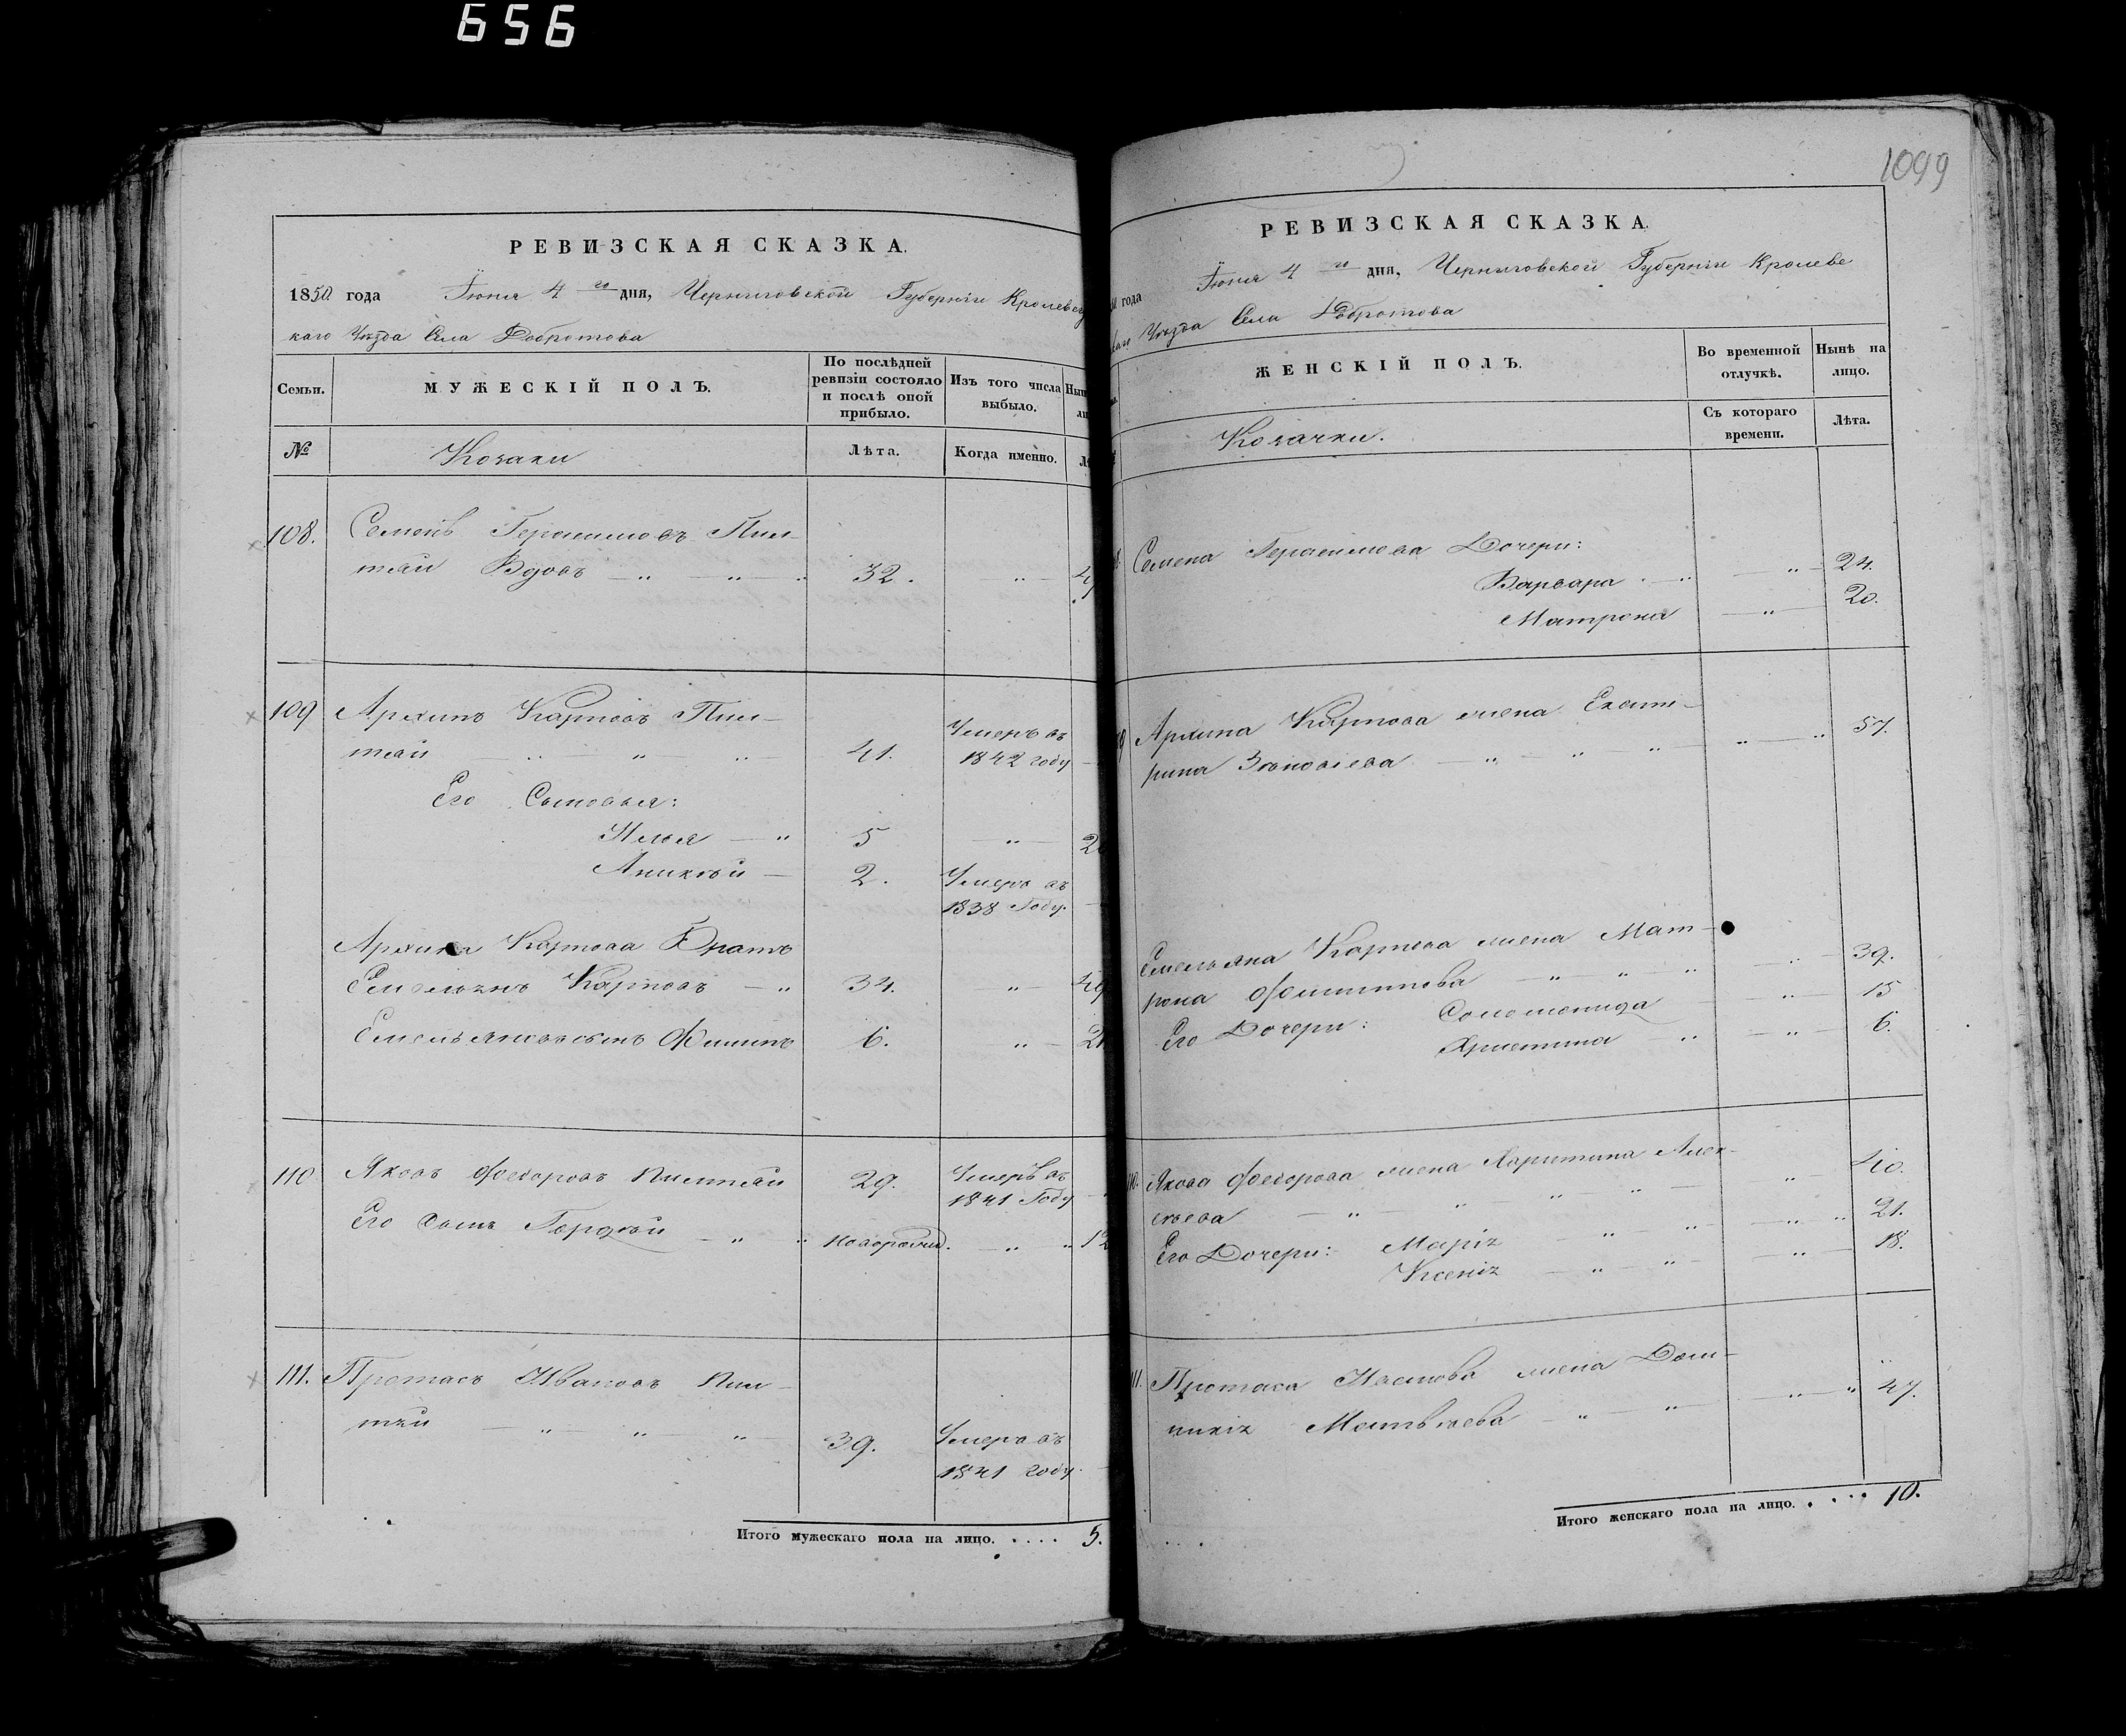 656
РЕВИЗСКАЯ СКАЗКА.
1850 года Іюня 4го дня, Черниговской Губерніи Кролевец
каго Уѣзда Села Добротова
Семьи.
МУЖЕСКІЙ ПОЛЪ.
По послѣдней
ревизіи состояло
и послѣ оной
прибыло.
Изъ того числа
выбыло.
№
Козаки
Лѣта.
Когда именно.
108. Семенъ Герасимовъ Пим-
тай Вдовъ 32.
109 Архипъ Карповъ Пим-
тай 41. Умеръ въ
1842 году
Его Сыновья:
Илья 5
Аникѣй 2. Умеръ въ
1838 Году.
Архипа Карпова Братъ
Емельянъ Карповъ 34.
Емельяновъ сынъ Филипъ 6.
110 Яковъ Федоровъ 29. Умеръ въ
1841 Году
Его Сынъ Гордѣй 12
111. Протасъ Ивановъ Пим-
тай 39. Умеръ въ
1841 году.
Итого мужескаго пола на лицо. .... 5.
1099
РЕВИЗСКАЯ СКАЗКА.
года Іюня 4го дня, Черниговской Губерніи Кролеве
каго Уѣзда Села Добротова
ЖЕНСКІЙ ПОЛЪ.
Во временной
отлучкѣ.
Нынѣ на
лицо.
Козачки.
Съ котораго
времени.
Лѣта.
Семена Герасимова Дочери:
Варвара 24.
Матрона 20.
Архипа Карпова жена Екате-
рина Зѣновіева 57.
Емельяна Карпова жена Мат-
рона Филиппова 39.
Его Дочери: Соломонида 15
Христина 6.
110. Якова Федорова жена Харитина Алек-
сѣева 40.
Его Дочери: Марія 21.
Ксенія 18.
111. Протаса Иванова жена Дом-
никія Матвѣева 47.
Итого женскаго пола на лицо. .... 10.